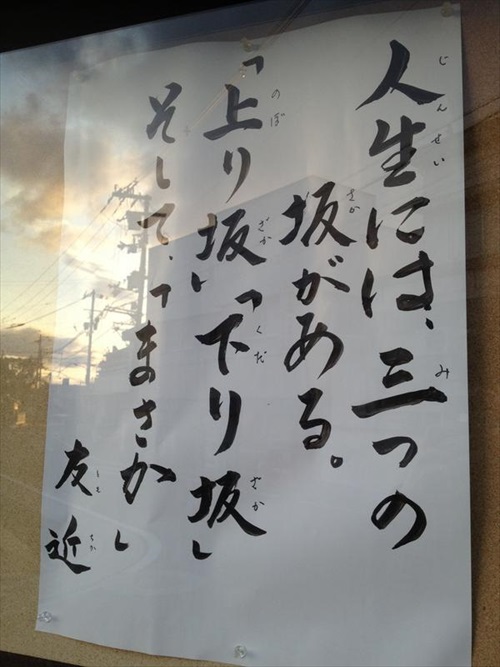 人生には、三つの
坂がある。
「上り坂」「下り坂」
そして、「まさか」
友近